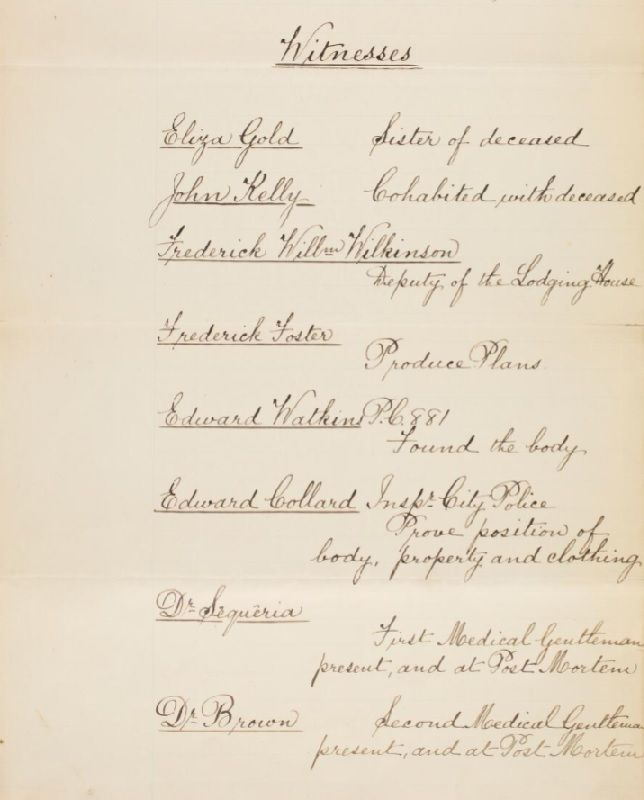 Witnesses
Eliza Gold Sister of deceased
John Kelly Cohabited with deceased
Frederick Willm Wilkinson
Deputy of the Lodging House
Frederick Foster
Produce Plans
Edward Watkins P.C. 881
Found the body
Edward Collard Inspr. City Police
Prove position of
body, property and clothing
Dr. Sequeria
First Medical Gentleman
present, and at Post Mortem
Dr. Brown Second Medical Gentleman
present, and at Post Mortem